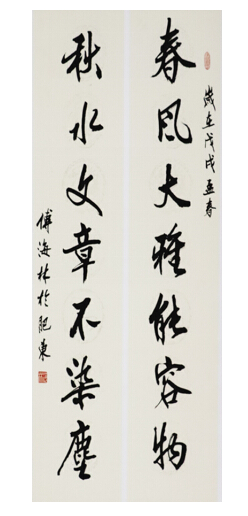 歲在戊戌孟春
春风大雅能容物
秋水文章不染塵
傅海林於肥東